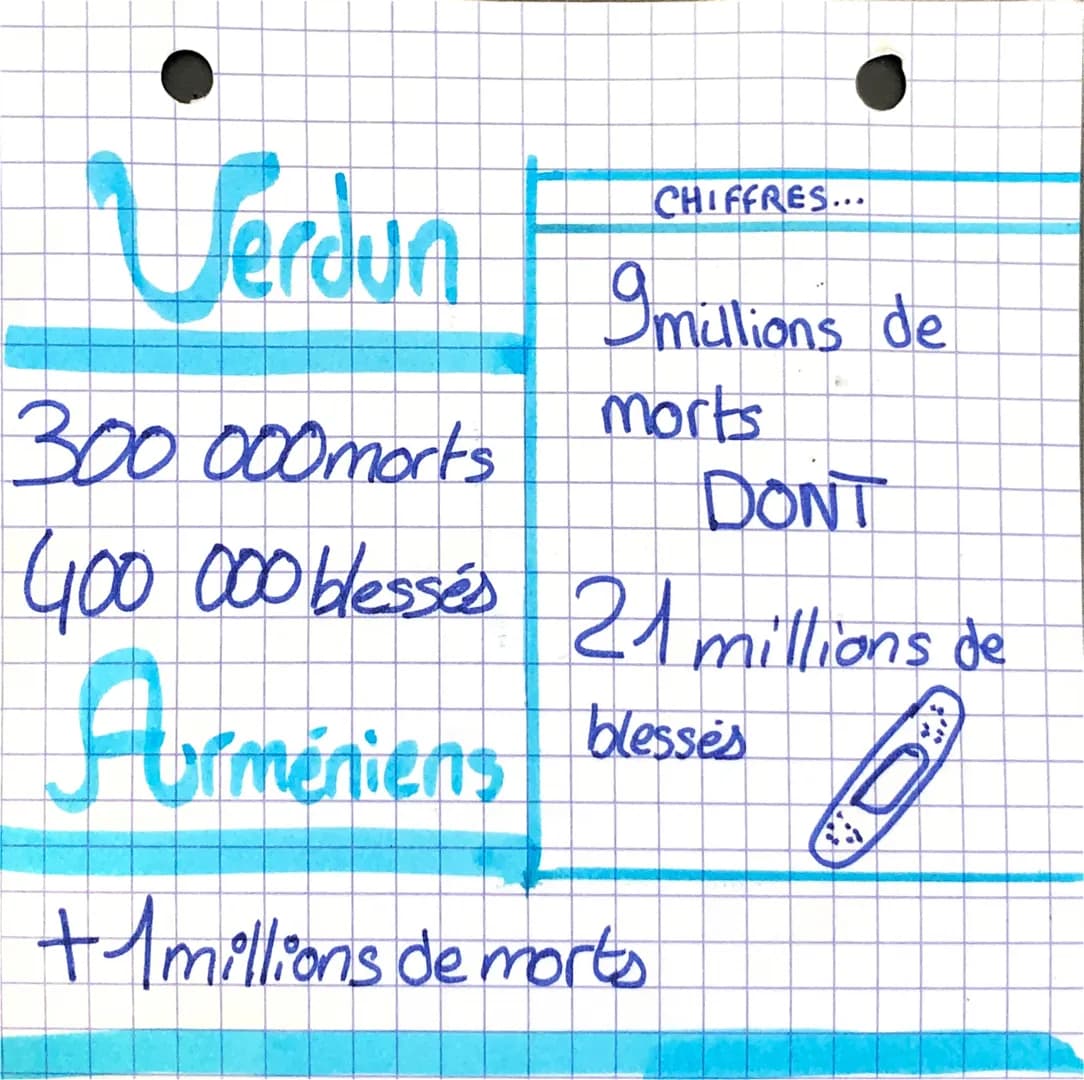 Verdun
300 000 morts
400 000 blessés
Arméniens
+ 1 millions de morts
CHIFFRES...
9 millions de
morts
DONT
21 millions de
blessés